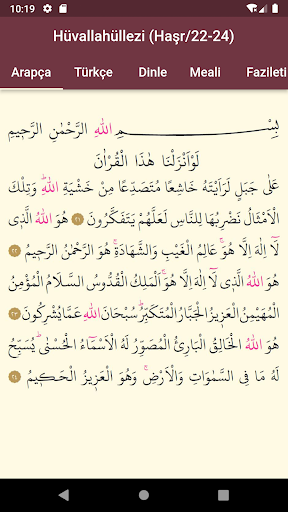 10:19
Hüvallahüllezi (Haşr/22-24)
Arapça Türkçe Dinle Meali Fazileti
بِسْمِ اللّٰهِ الرَّحْمٰنِ الرَّحٖيمِ
لَوْ اَنْزَلْنَا هٰذَا الْقُرْاٰنَ
عَلٰى جَبَلٍ لَرَاَيْتَهُ خَاشِعًا مُتَصَدِّعًا مِنْ خَشْيَةِ اللّٰهِؕ وَتِلْكَ
الْاَمْثَالُ نَضْرِبُهَا لِلنَّاسِ لَعَلَّهُمْ يَتَفَكَّرُونَ ﴿٢١﴾ هُوَ اللّٰهُ الَّذٖى
لَٓا اِلٰهَ اِلَّا هُوَۚ عَالِمُ الْغَيْبِ وَالشَّهَادَةِۚ هُوَ الرَّحْمٰنُ الرَّحٖيمُ ﴿٢٢﴾
هُوَ اللّٰهُ الَّذٖى لَٓا اِلٰهَ اِلَّا هُوَۚ اَلْمَلِكُ الْقُدُّوسُ السَّلَامُ الْمُؤْمِنُ
الْمُهَيْمِنُ الْعَزٖيزُ الْجَبَّارُ الْمُتَكَبِّرُؕ سُبْحَانَ اللّٰهِ عَمَّا يُشْرِكُونَ ﴿٢٣﴾
هُوَ اللّٰهُ الْخَالِقُ الْبَارِئُ الْمُصَوِّرُ لَهُ الْاَسْمَٓاءُ الْحُسْنٰىؕ يُسَبِّحُ
لَهُ مَا فِى السَّمٰوَاتِ وَالْاَرْضِۚ وَهُوَ الْعَزٖيزُ الْحَكٖيمُ ﴿٢٤﴾